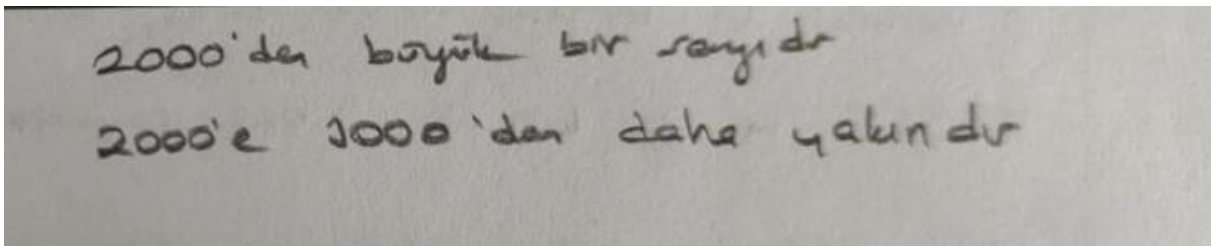 2000'den büyük bir sayıdır
2000'e 1000'den daha yakındır